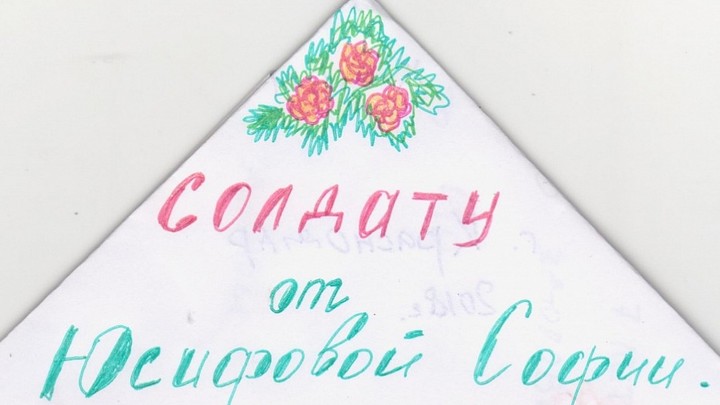 Солдату
от
Юсифовой Софии.